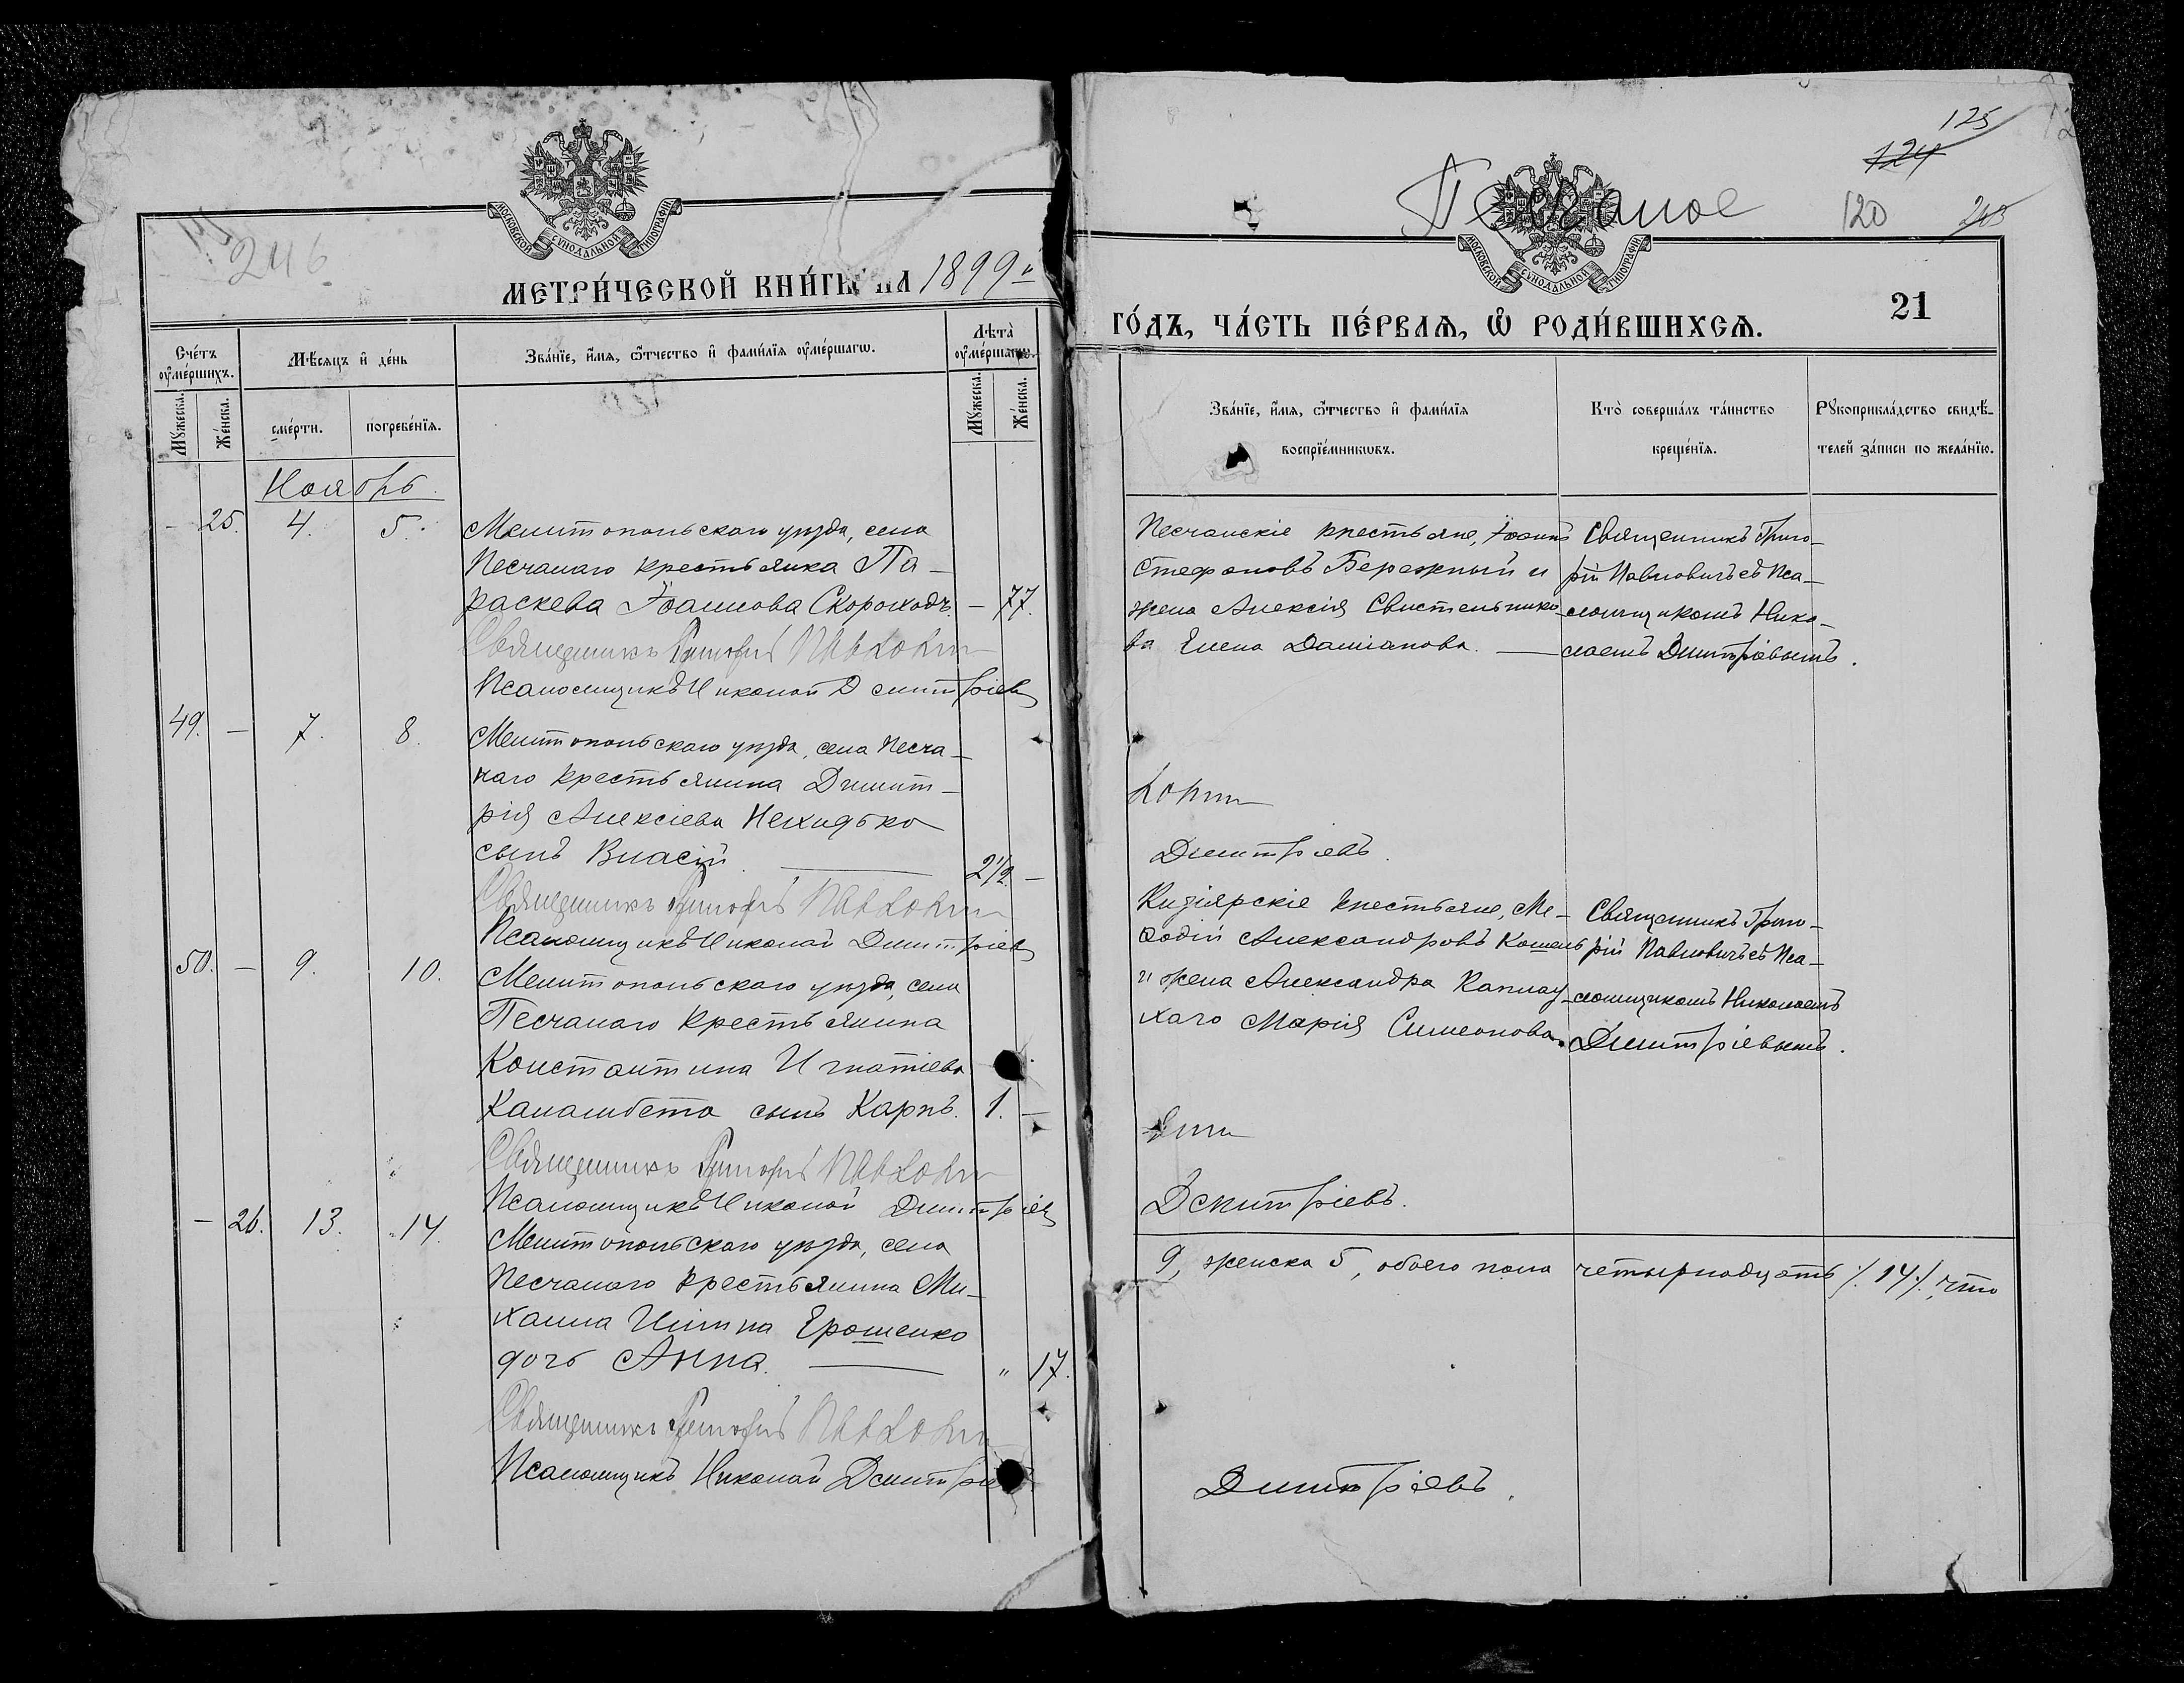 246
МОСКОВСКОЙ СУНОДАЛЬНОЙ ТИПОГРАФІИ
МЕТРИ́ЧЕСКОЙ КНИ́ГИ НА 1899 г
Сче́тъ ᲂу҆ме́ршихъ.
Мѣ́сяцъ и҆ де́нь
Зва́нїе, и҆́мѧ, ѻ҆́тчество и҆ фами́лїѧ ᲂу҆ме́ршагѡ.
Лѣта̀ ᲂу҆ме́ршагѡ.
Мꙋ́жеска.
Же́нска.
сме́рти.
погребе́нїѧ.
Мꙋ́жеска.
Же́нска.
Ноябрь.
- 25. 4. 5. Мелитопольскаго уѣзда, села
Песчанаго крестьянка Па-
раскева Іоаннова Скороходъ. - 77.
Священникъ Григорій Павлович
Псаломщикъ Николай Димитріевъ
49. - 7. 8. Мелитопольскаго уѣзда, села Песча-
наго крестьянина Димит-
рія Алексіева Нехидько
сынъ Власій. 2 1/2. -
Священникъ Григорій Павлович
Псаломщикъ Николай Димитріевъ
50. - 9. 10. Мелитопольскаго уѣзда, села
Песчанаго крестьянина
Константина Игнатіева
Каламбета сынъ Карпъ. 1. -
Священникъ Григорій Павлович
Псаломщикъ Николай Димитріевъ
- 26. 13. 14. Мелитопольскаго уѣзда, села
Песчанаго крестьянина Ми-
хаила Ерошенко
дочь Анна. " 17.
Священникъ Григорій Павлович
Псаломщикъ Николай Димитріев
125
124
Песчаное 120 245
МОСКОВСКОЙ СУНОДАЛЬНОЙ ТИПОГРАФІИ
21
ГО́ДЪ, ЧА́СТЬ ПЕ́РВАѦ, Ѡ҆ РОДИ́ВШИХСѦ.
Зва́нїе, и҆́мѧ, ѻ҆́тчество и҆ фами́лїѧ
воспрїе́мникѡвъ.
Кто̀ соверша́лъ та́инство
креще́нїѧ.
Рꙋкоприкла́дство свидѣ́-
телей за́писи по жела́нїю.
Песчанскіе крестьяне, Іоаннъ
Стефановъ Бережный и
жена Алексія Свистельнико-
ва Елена Даміанова.
Священникъ Григо-
рій Павловичъ съ Пса-
ломщикомъ Нико-
лаемъ Димитріевымъ.
Димитріевъ.
Кизіярскіе крестьяне, Ме-
ѳодій Александровъ Кошель
и жена Александра Каплау-
хаго Марія Симеонова.
Священникъ Григо-
рій Павловичъ съ Пса-
ломщикомъ Николаемъ
Димитріевымъ.
Димитріевъ.
9, женска 5, обоего пола четырнадцать /.14./, что
Димитріевъ.